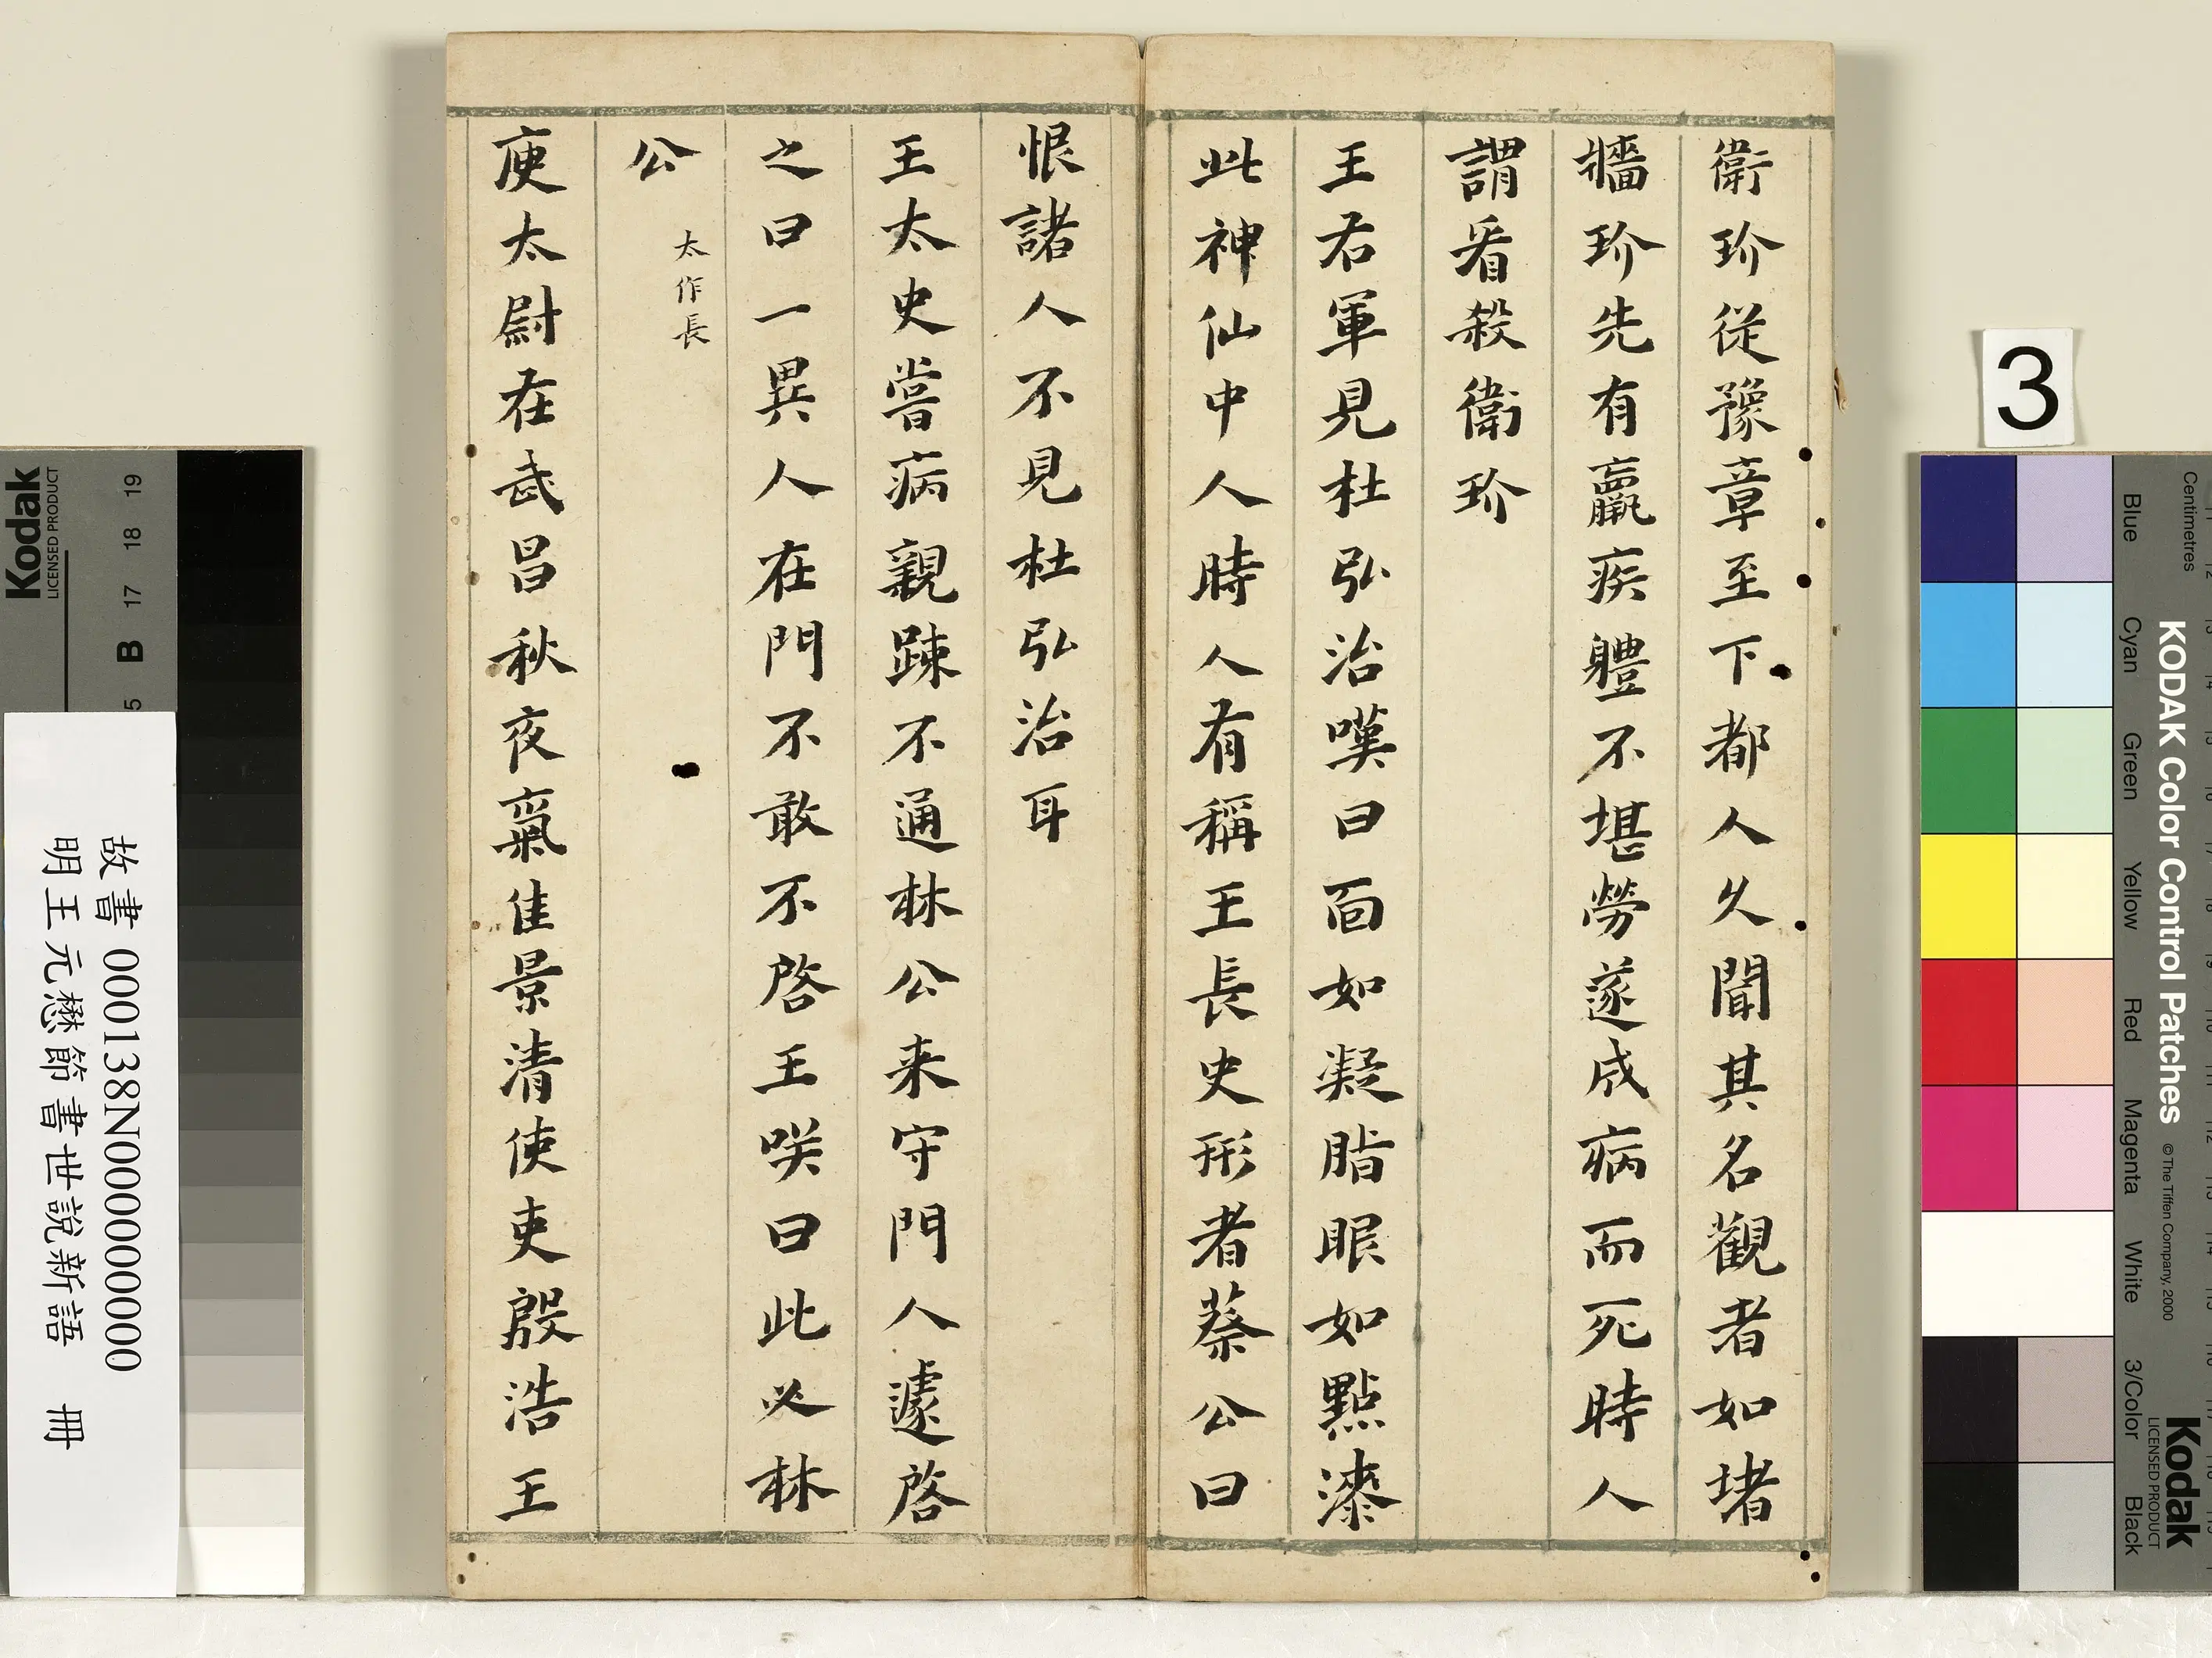 衛玠從豫章至下都人久聞其名觀者如堵
牆玠先有羸疾軆不堪勞遂成病而死時人
謂看殺衛玠
王右軍見杜弘治嘆曰面如凝脂眼如點漆
此神仙中人時人有稱王長史形者蔡公曰
恨諸人不見杜弘治耳
王太史嘗病親踈不通林公来守門人遽啓
之曰一異人在門不敢不啓王咲曰此必林
公 太作長
庾太尉在武昌秋夜氣佳景清使吏殷浩王
故書 000138N000000000
明王元懋節書世說新語 冊
3
Kodak
LICENSED PRODUCT
B 17 18 19
KODAK Color Control Patches
© The Tiffen Company, 2000
Kodak
LICENSED PRODUCT
Centimetres
Blue Cyan Green Yellow Red Magenta White 3/Color Black